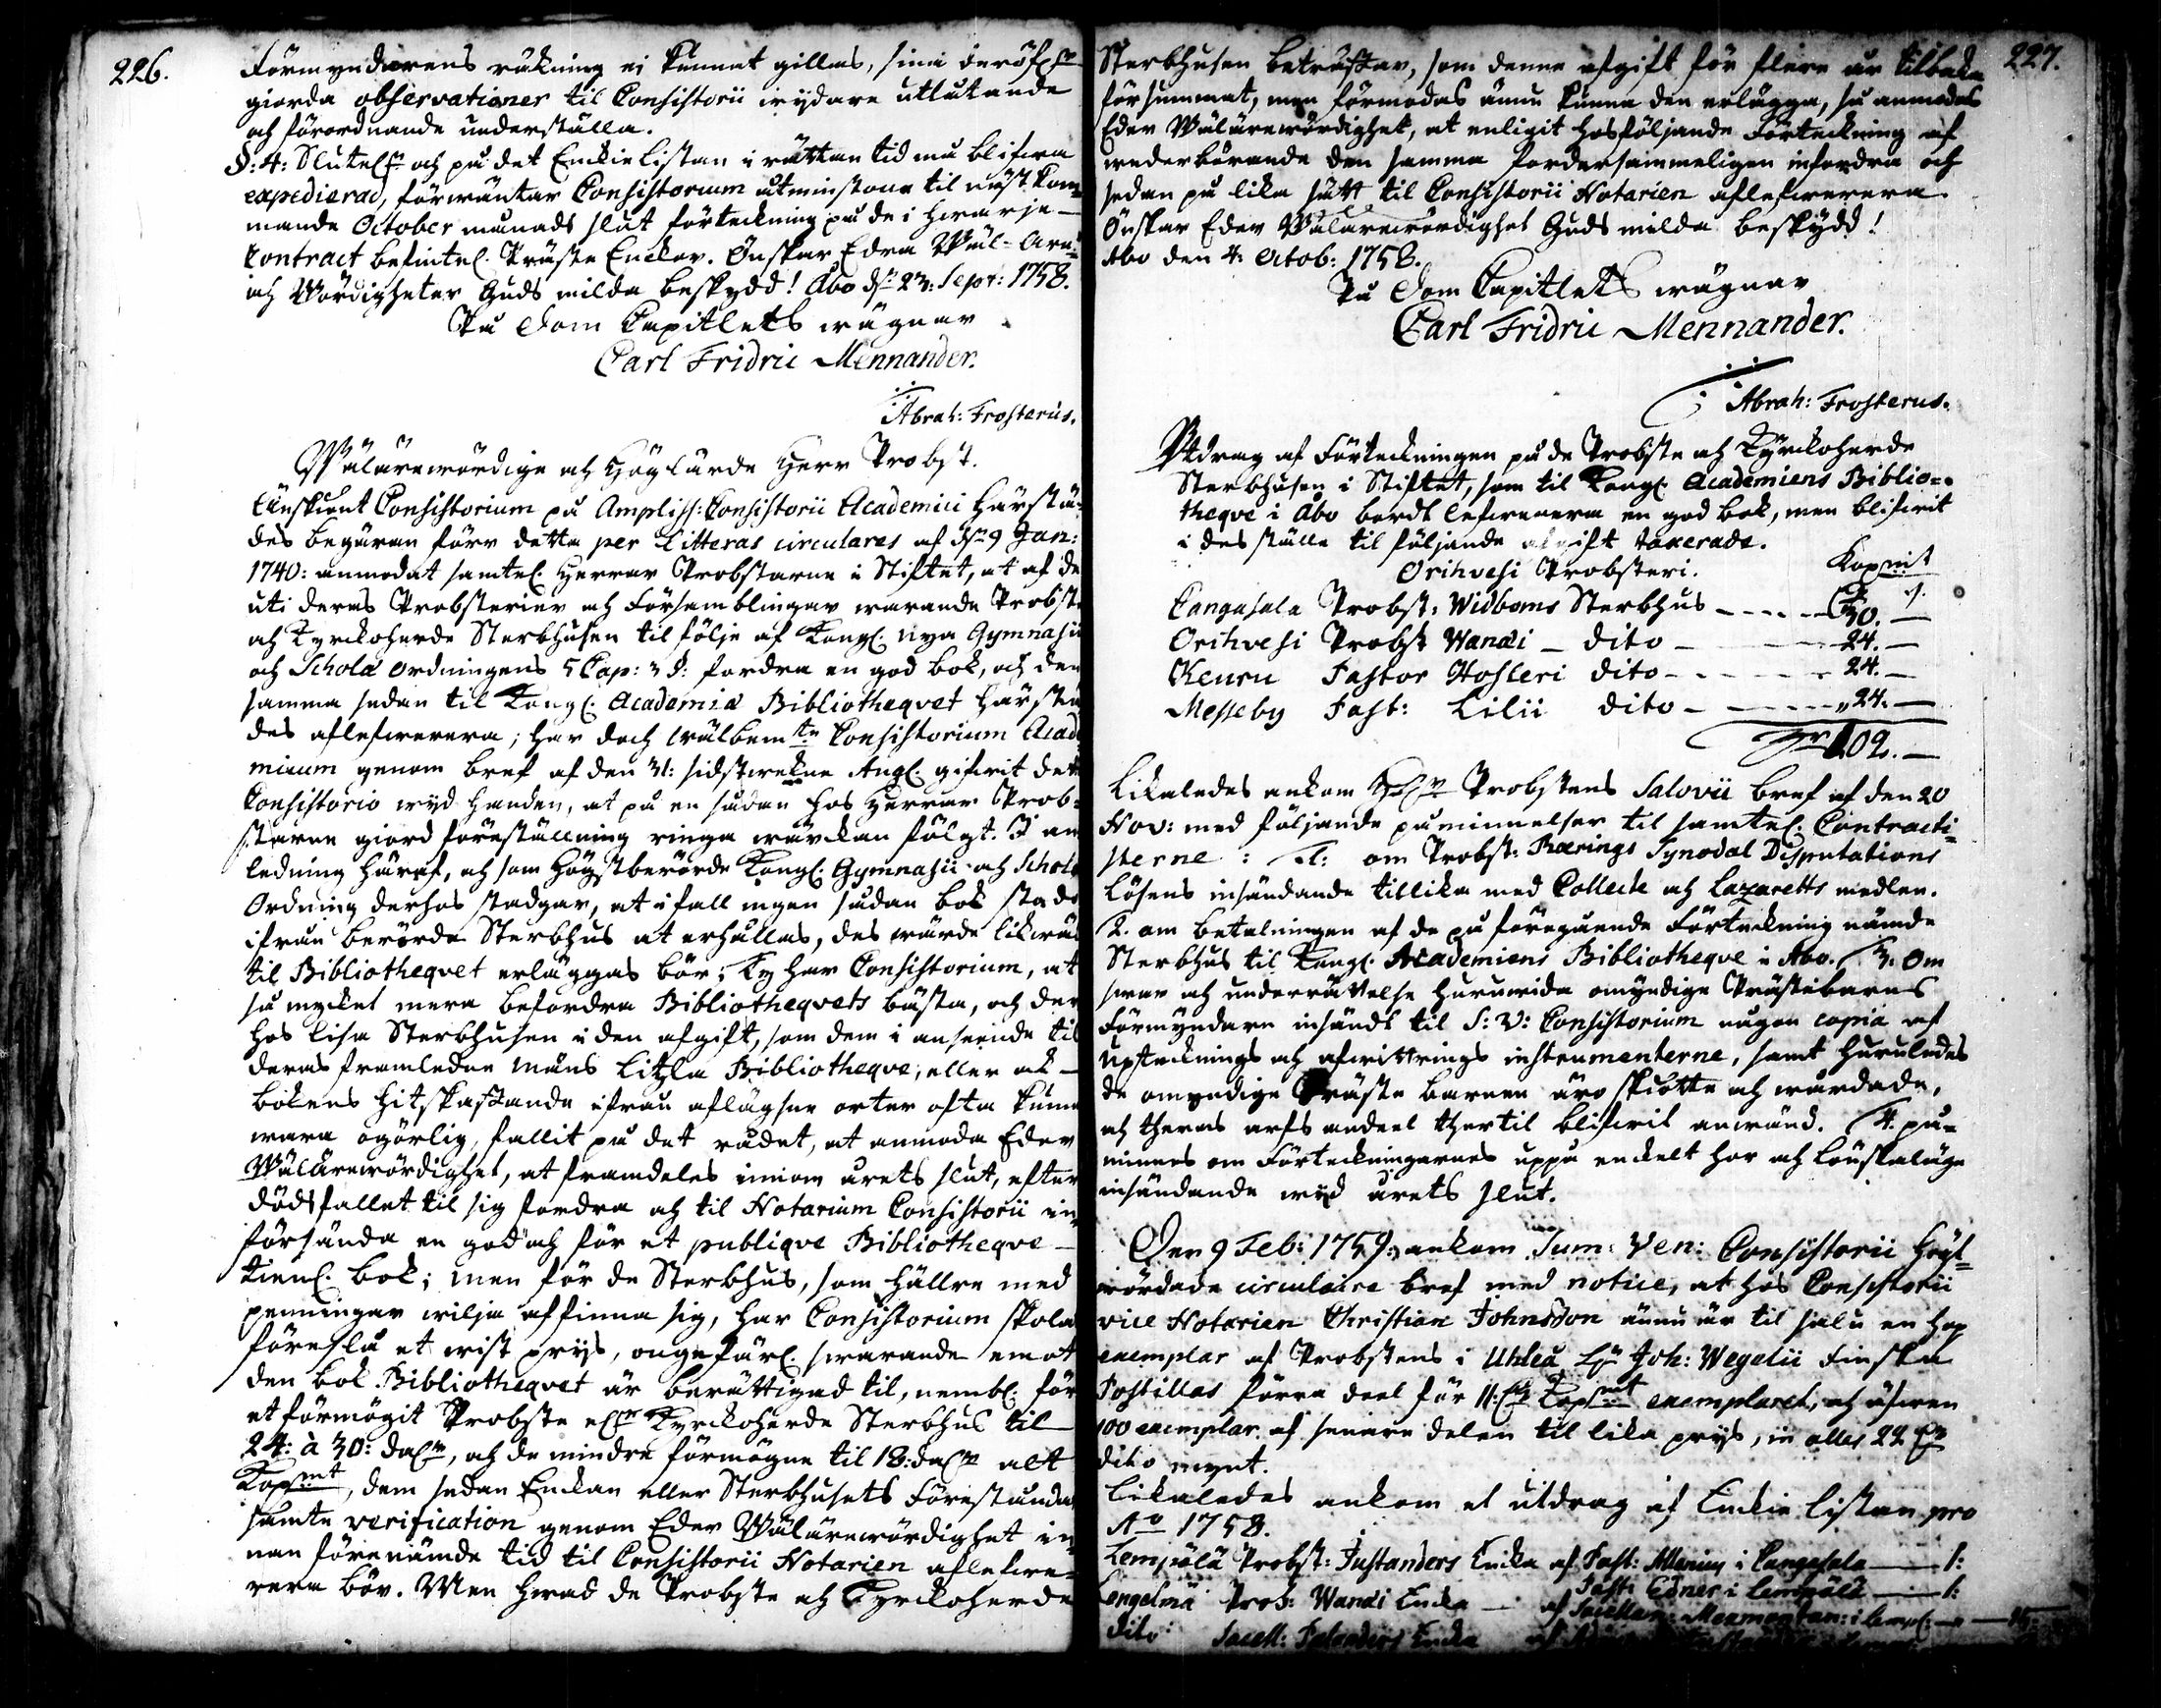 226.
Förmyndarens räkning ej kunnat gillas, sina deröfver
giorda observationer til Consistorii wydare utlåtande
och förordnande underställa.
§: 4: Slutel. och på det Enckie Listan i rättan tid må blifwa
expedierad, förwäntar Consistorium åtminstone til näst kom-
mande October månads slut förteckning på de i hwarje
Contract befintel. Präste Enckor. Önskar Edra Wäl-Äre-
och Wördigheter Guds milda beskydd! Åbo d. 23: Sept: 1758.
På Dom Capitlets wägnar
Carl Fridric Mennander.
Abrah: Frosterus.
Wälärewördige och Höglärde Herr Probst.
Änskiönt Consistorium på Ampliss: Consistorii Academici härstä-
des begäran förr detta per Litteras circulares af d. 9 Jan:
1740: anmodat samtel. Herrar Probstarne i Stiftet, at af de
uti deras Probsterier och Församblingar warande Probste
och Kyrckoherde Sterbhusen til följe af Kongl. nya Gymnasii
och Scholæ Ordningens 5 Cap: 3 §: fordra en god bok, och den
samma sedan til Kongl. Academiæ Bibliotheqvet härstä
des aflefwerera; har doch wälbemte Consistorium Acade
micum genom bref af den 31: sidstwekne Aug. gifwit detta
Consistorio wyd handen, at på en sådan hos Herrar Prob-
starne giord föreställning ringa wärckan fölgt. I an
ledning häraf, och som Högstberörde Kongl. Gymnasii och Scholæ
Ordning derhos stadgar, at ifall ingen sådan bok stode
ifrån berörde Sterbhus at erhållas, des wärde likwäl
til Bibliotheqvet erläggas bör; Ty har Consistorium, at
så mycket mera befordra Bibliotheqvets bästa, och der
hos lisa Sterbhusen i den afgift, som dem i anseende til
deras framledne mäns litzla Bibliotheqve, eller ock
bokens hitskaffande ifrån aflägsne orter ofta kunne
wara ogörlig, fallit på det rådet, at anmoda Eder
Wälärewördighet, at framdeles innom årets slut, efter
dödsfallet til sig fordra och til Notarium Consistorii in
försända en god och för et publiqve Bibliotheqve
tienl. bok; men för de Sterbhus, som hällre med
penningar wilja affinna sig, har Consistorium skolat
föreslå et wist prys, ongefärl. swarande emot
den bok Bibliotheqvet är berättigad til, nembl. för
et förmögit Probste eller Kyrckoherde Sterbhus til
24: à 30: daler, och de mindre förmögne til 18: daler alt
Kopmt, dem sedan Enckan eller Sterbhusets Föreståndare
samte verification genom Eder Wälärewördighet in
nan förenämde tid til Consistorii Notarien aflefwe-
rera bör. Men hwad de Probste och Kyrckoherde
227.
Sterbhusen beträffar, som denne afgift för flere år tilbaka
försummat, men förmodas ännu kunna den erlägga, så anmodas
Eder Wälärewördighet, at enligit hosföljande Förteckning af
wederbörande den samma fordersammeligen infordra och
sedan på lika sätt til Consistorii Notarien aflefwerera.
Önskar Eder Wälärewördighet Guds milda beskydd!
Abo den 4: Octob: 1758.
På Dom Capitlets wägnar
Carl Fridric Mennander.
Abrah: Frosterus.
Utdrag af Förteckningen på de Probste och Kyrckoherde
Sterbhusen i Stiftet, som til Kongl. Academiens Biblio-
theqve i Åbo bordt lefwerera en god bok, men blifwit
i des ställe til följande afgift taxerade.
Orihvesi Probsteri. Kopmt
Cangasala Probst: Widboms Sterbhus 30. —
Orihvesi Probst Wanæi — dito — 24. —
Keuru Pastor Hosleri dito — 24. —
Messeby Past: Lilii dito — 24. —
102. —
Likaledes ankom Probstens Salovii bref af den 20
Nov: med följande påminnelser til samtel. Contracti-
sterne: 1: om Probst: Rærings Synodal Disputations
Lösens insändande tillika med Collecte och Lazaretts medlen.
2. om betalningen af de på föregående Förteckning nämde
Sterbhus til Kongl. Academiens Bibliotheqve i Abo. 3. Om
swar och underrättelse huruwida omyndige Prästebarns
Förmyndare insändt til S: V: Consistorium någon copia af
upteknings och afwittrings instrumenterne, samt huruledes
de omyndige Präste barnen äro skiötte och wårdade,
och theras arfs andeel thertil blifwit anwänd. 4. på-
minnes om Förteckningarnes uppå enckelt hor och Lönskaläge
insändande wyd årets slut.
Den 9 Feb: 1759: ankom Sum: Ven: Consistorii Högt-
wördade circulaire bref med notice, at hos Consistorii
vice Notarien Christian Johnsson ännu är til salu en hop
exemplar af Probstens i Uhleå Joh: Wegelii Finska
Postillas förra deel för 11: Kopmt exemplaret, och äfwen
100 exemplar af senare delen til lika prys, in alles 22
dito mynt.
Likaledes ankom et utdrag af Enckie Listan pro
Ao 1758.
Lempälä Probst: Justanders Encka af Past: Allenius i Cangasala — 1:
Lengelmä Prob: Wanæi Encka — Past: Edner i Lempälä — 1:
dito Sacell: Encka